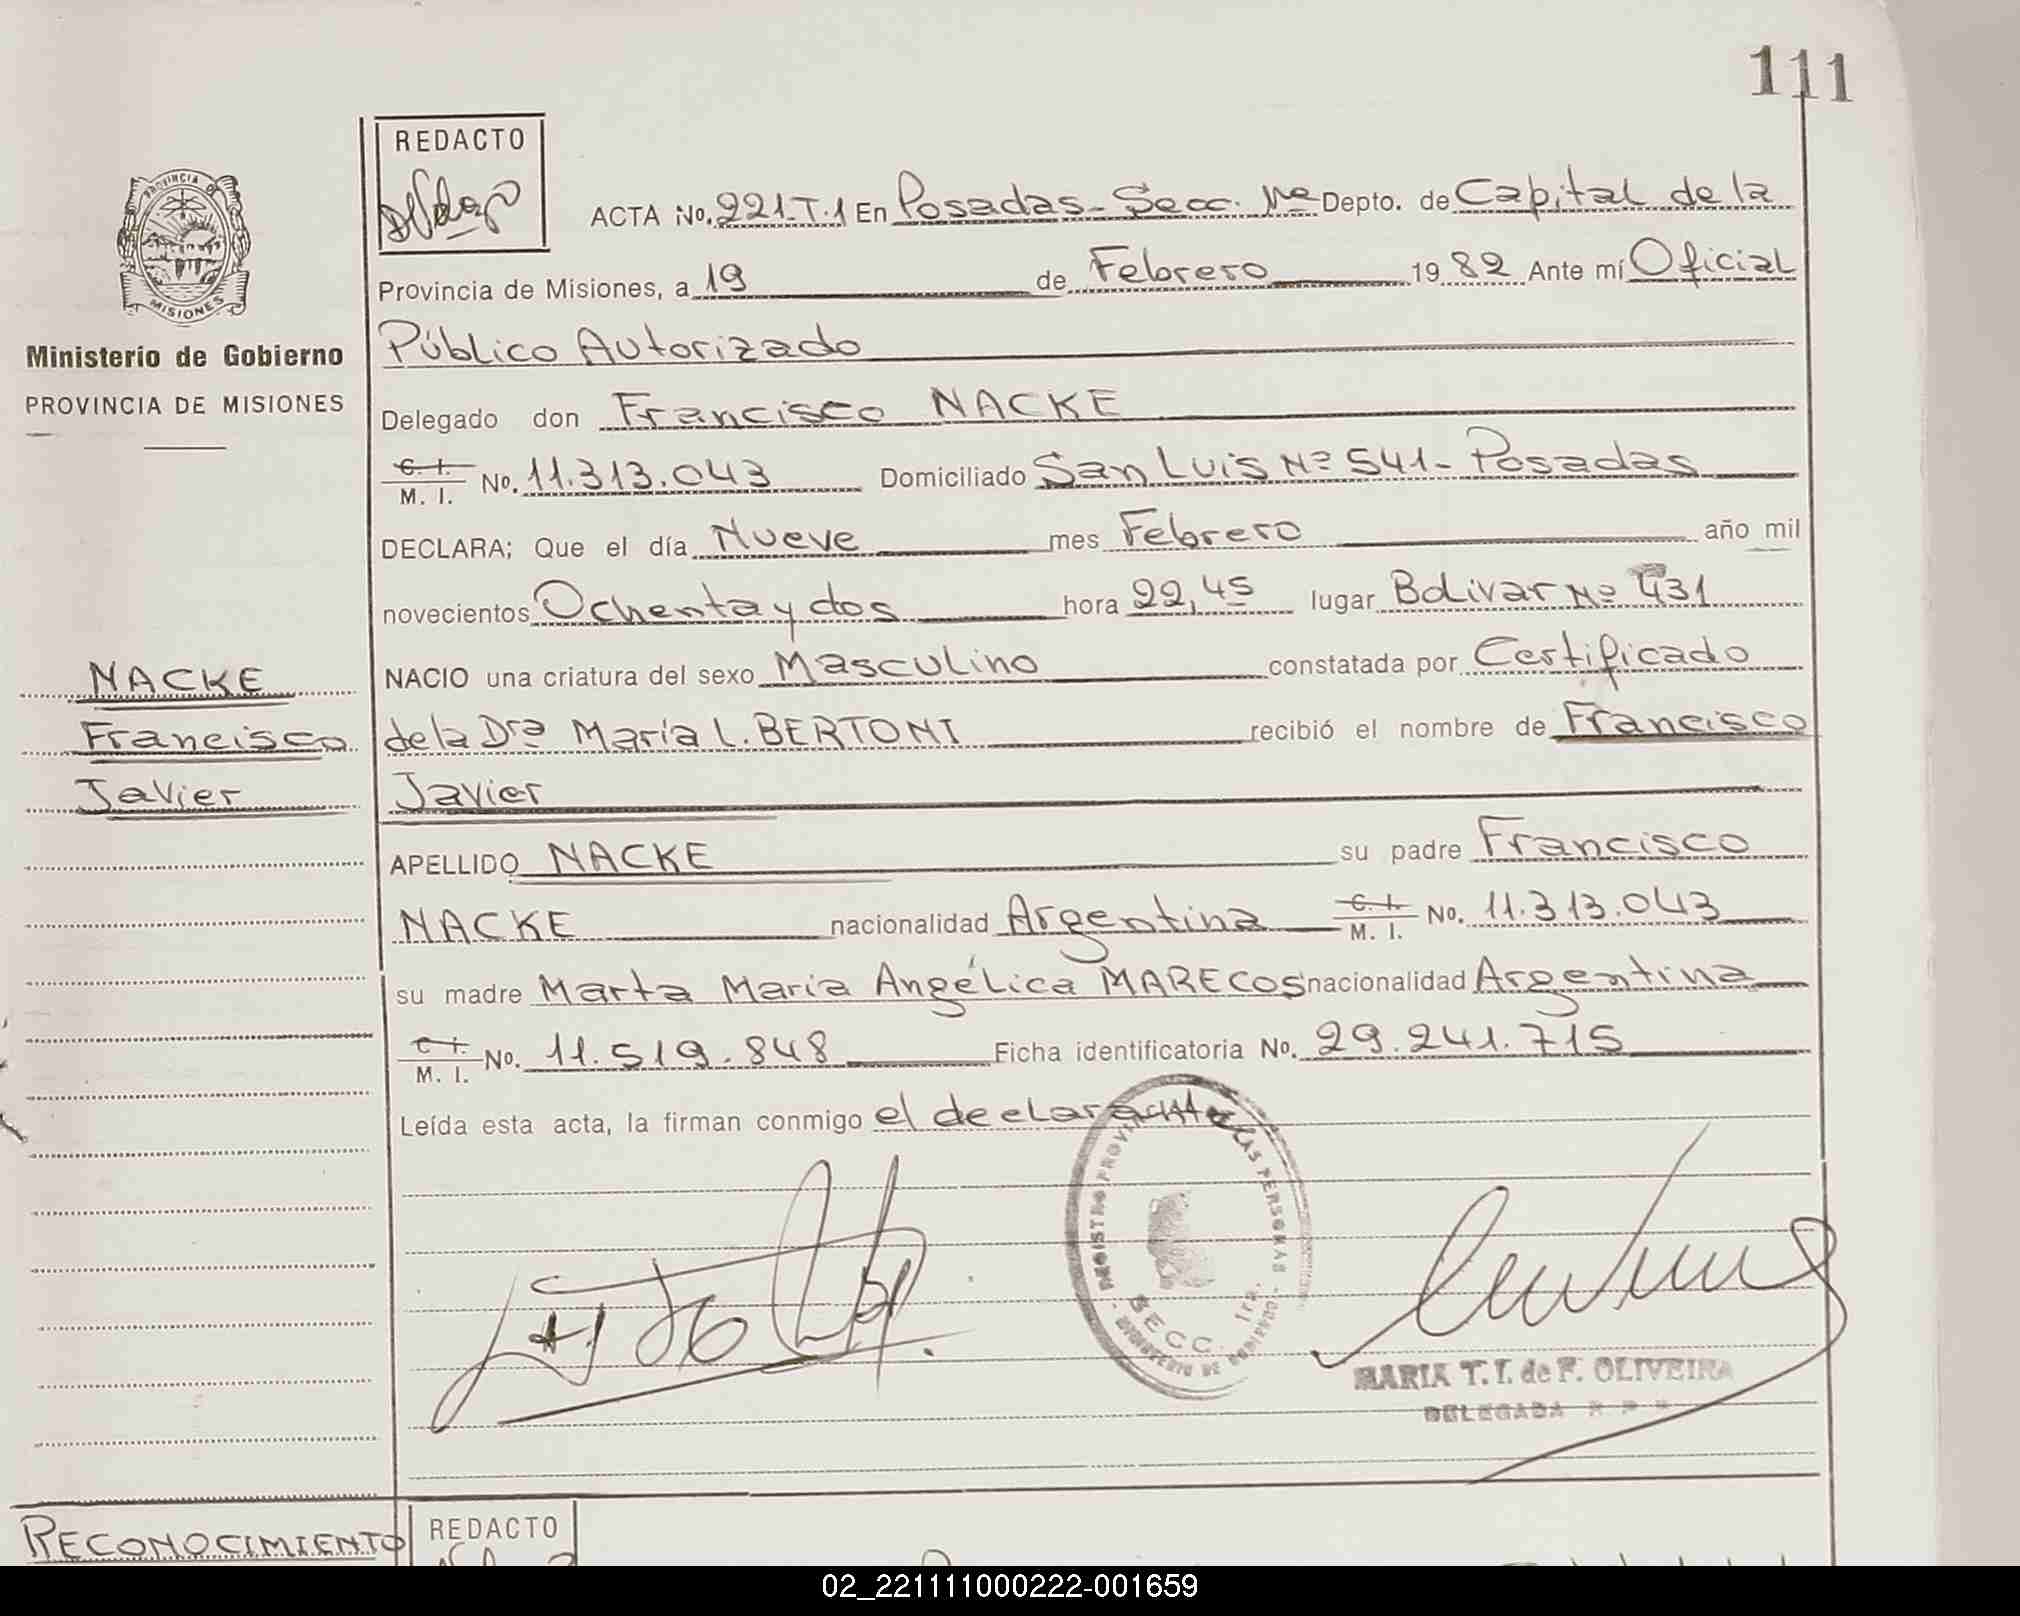 111
REDACTO
PROVINCIA DE
MISIONES
Ministerio de Gobierno
PROVINCIA DE MISIONES
ACTA No. 221-T.1 En Posadas-Secc. 1ra Depto. de Capital de la
Provincia de Misiones, a 19 de Febrero 1982 Ante mí Oficial
Público Autorizado
Delegado don Francisco NACKE
C. I. M. I. No. 11.313.043 Domiciliado San Luis Nº 541- Posadas
DECLARA; Que el día Nueve mes Febrero año mil
novecientos Ochenta y dos hora 22,45 lugar Bolivar Nº 431
NACKE
NACIO una criatura del sexo Masculino constatada por Certificado
Francisco
de la Dra María L. BERTONI recibió el nombre de Francisco
Javier
Javier
APELLIDO NACKE su padre Francisco
NACKE nacionalidad Argentina C. I. M. I. No. 11.313.043
su madre Marta María Angélica MARECOS nacionalidad Argentina
C. I. M. I. No. 11.519.848 Ficha identificatoria No. 29.241.715
Leída esta acta, la firman conmigo el declarante
REGISTRO PROVINCIAL DE LAS PERSONAS
SECC. 1ra.
MINISTERIO DE GOBIERNO
MARIA T. I. de F. OLIVEIRA
DELEGADA R P P
RECONOCIMIENTO
REDACTO
02_221111000222-001659